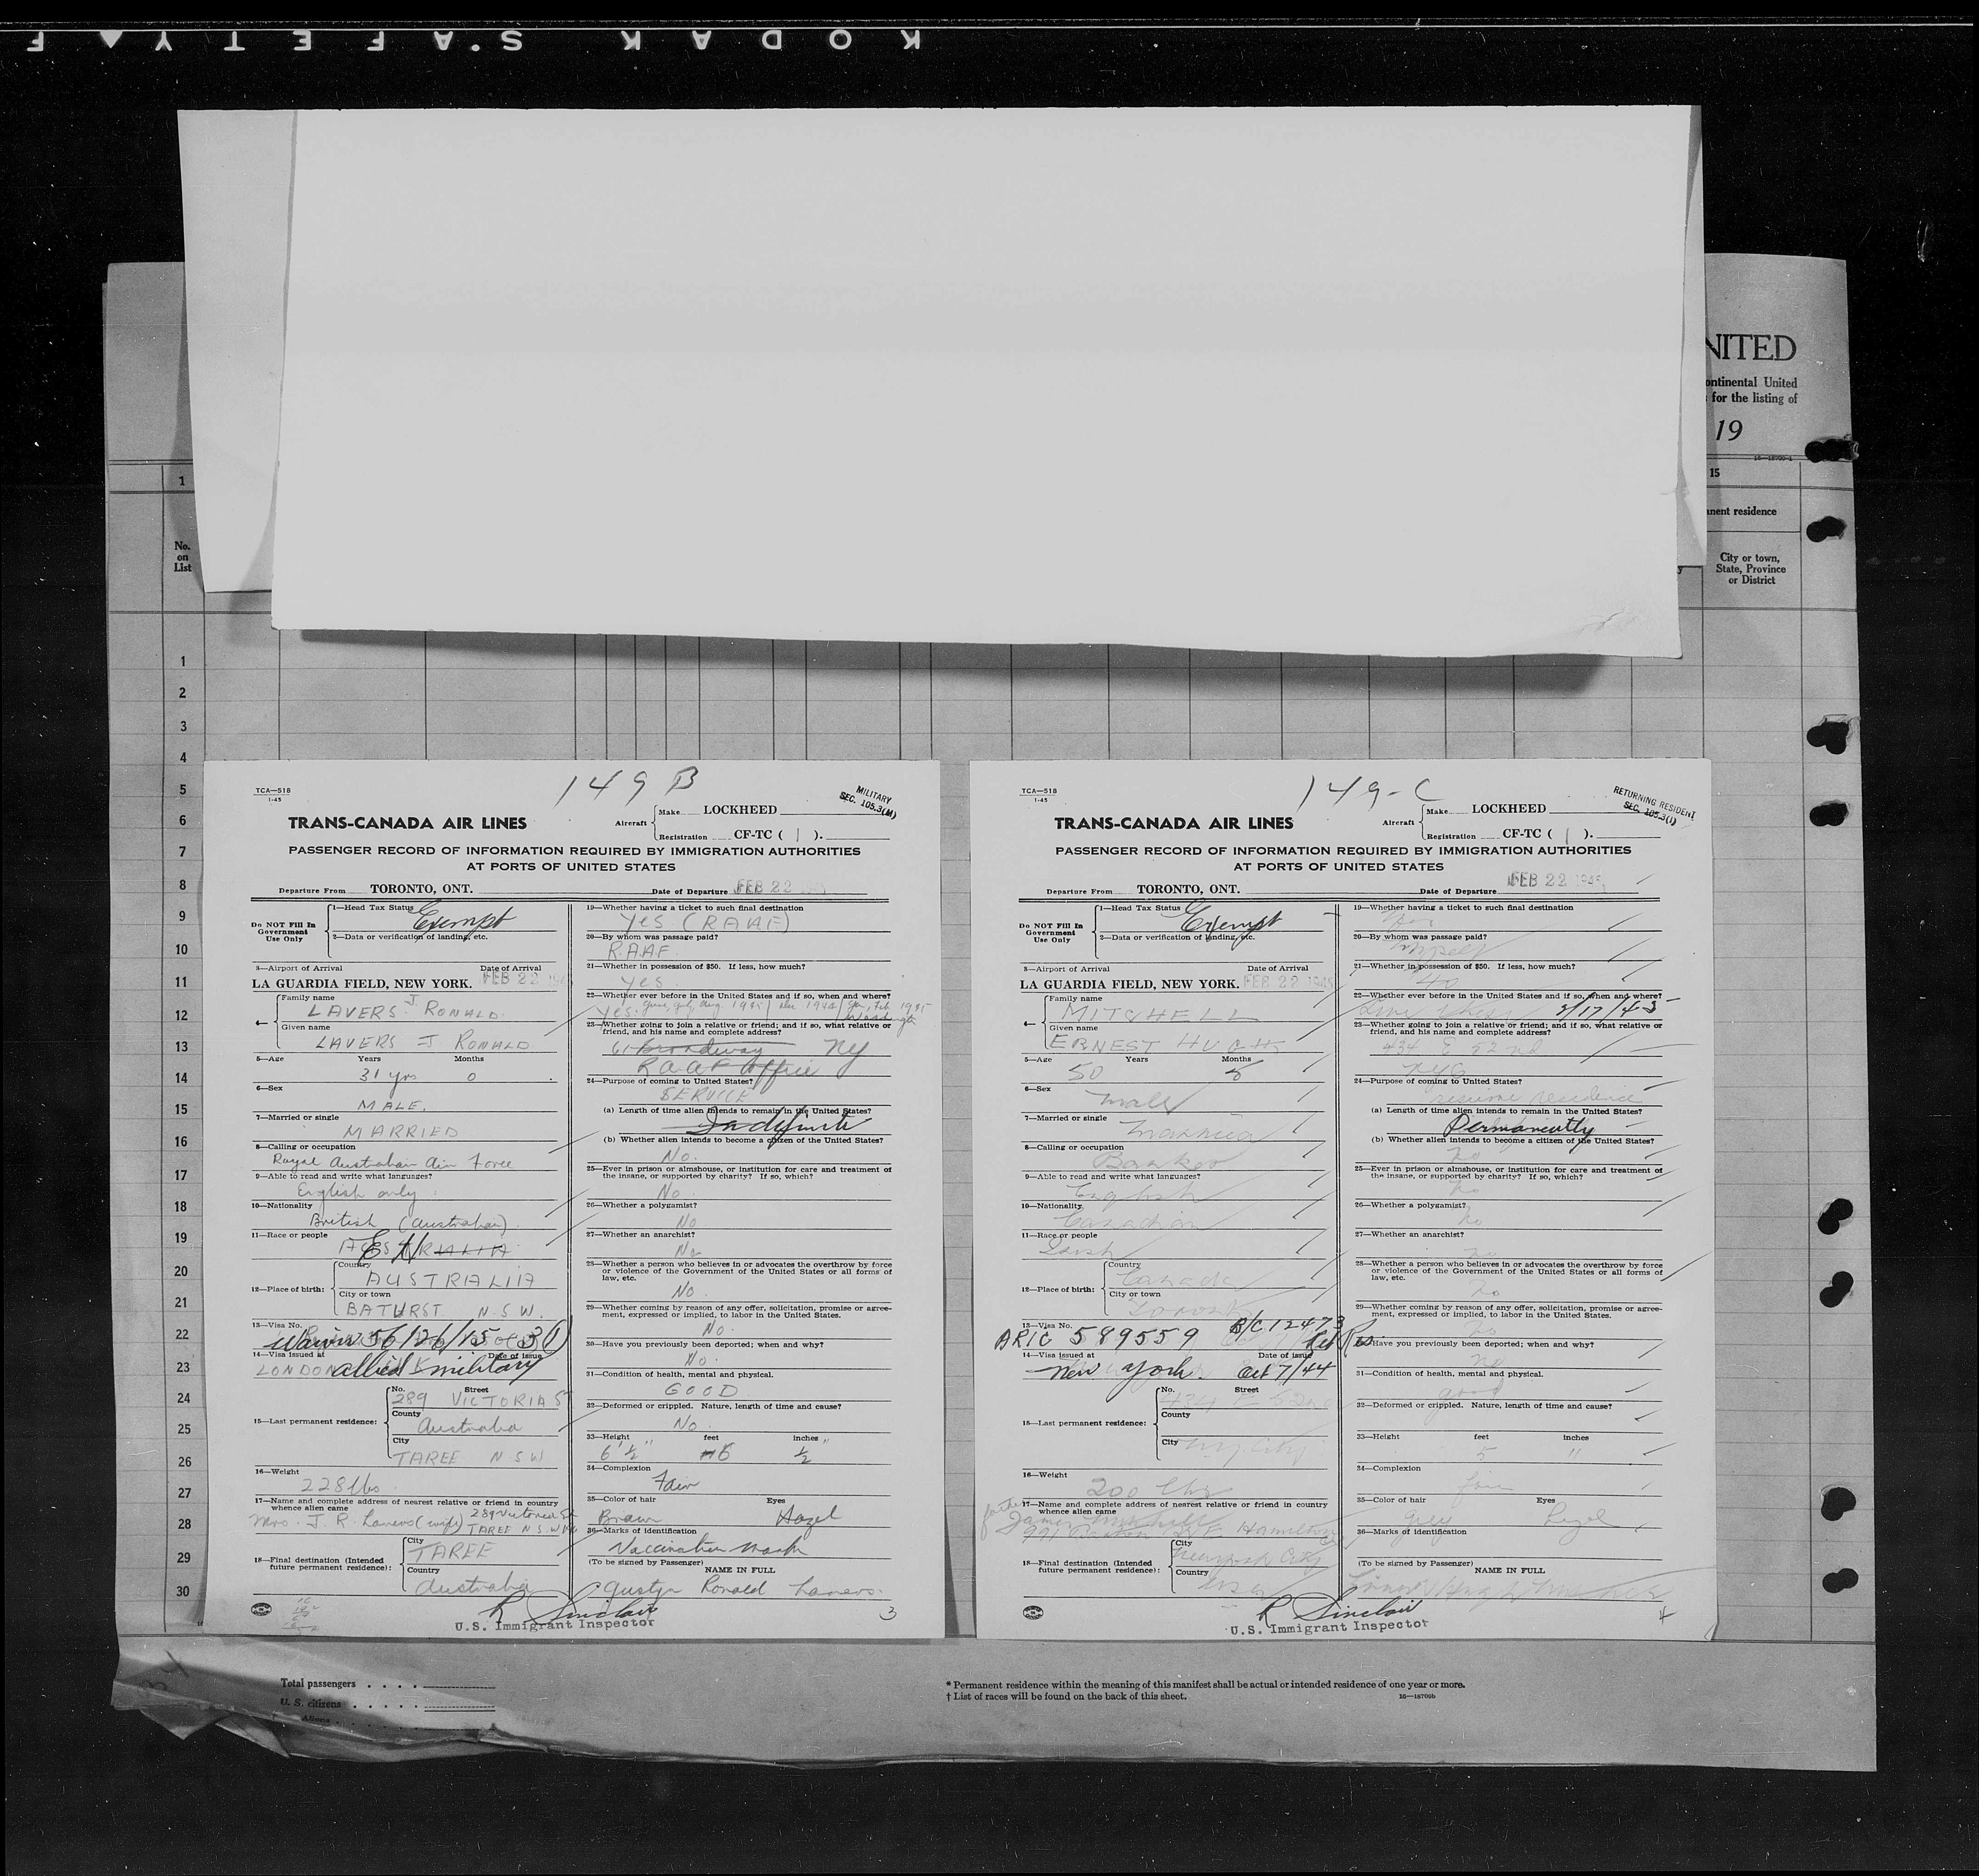 KODAK SAFETY F
NITED
ontinental United
for the listing of
19
1
15
nent residence
No.
on
List
City or town,
State, Province
or District
1
2
3
4
5
6
7
8
9
10
11
12
13
14
15
16
17
18
19
20
21
22
23
24
25
26
27
28
29
30
149 B
TCA—518
1-45
MILITARY
SEC. 105.3(M)
TRANS-CANADA AIR LINES
Aircraft
Make LOCKHEED
Registration CF-TC ( 1 ).
PASSENGER RECORD OF INFORMATION REQUIRED BY IMMIGRATION AUTHORITIES
AT PORTS OF UNITED STATES
Departure From TORONTO, ONT. Date of Departure FEB 22
Do NOT Fill In
Government
Use Only
1—Head Tax Status Exempt
2—Data or verification of landing, etc.
3—Airport of Arrival Date of Arrival
LA GUARDIA FIELD, NEW YORK. FEB 22 194
4—
Family name
LAVERS J. RONALD.
Given name
LAVERS J RONALD
5—Age Years Months
31 yrs 0
6—Sex
MALE.
7—Married or single
MARRIED
8—Calling or occupation
Royal Australian Air Force
9—Able to read and write what languages?
English only
10—Nationality
British (Australian)
11—Race or people
AUSTRALIA
12—Place of birth:
Country
AUSTRALIA
City or town
BATURST N.S.W.
13—Visa No.
Waiver 56126/15
14—Visa issued at Date of issue
LONDON allied military
15—Last permanent residence:
No. Street
289 VICTORIA ST
County
Australia
City
TAREE N.S.W
16—Weight
228 lbs.
17—Name and complete address of nearest relative or friend in country
whence alien came
Mrs. J. R. Lavers (wife) 289 Victoria St
TAREE N S W
18—Final destination (Intended
future permanent residence):
City
TAREE
Country
Australia
19—Whether having a ticket to such final destination
Yes (RAAF)
20—By whom was passage paid?
R.A.A.F.
21—Whether in possession of $50. If less, how much?
Yes
22—Whether ever before in the United States and if so, when and where?
Yes. June, July, Aug. 1945 / Dec 1944 / Jan, Feb 1945
Washington
23—Whether going to join a relative or friend; and if so, what relative or
friend, and his name and complete address?
61 Broadway NY
RAAF Office
24—Purpose of coming to United States?
SERVICE
(a) Length of time alien intends to remain in the United States?
Indefinite
(b) Whether alien intends to become a citizen of the United States?
No.
25—Ever in prison or almshouse, or institution for care and treatment of
the insane, or supported by charity? If so, which?
No
26—Whether a polygamist?
No
27—Whether an anarchist?
No
28—Whether a person who believes in or advocates the overthrow by force
or violence of the Government of the United States or all forms of
law, etc.
No.
29—Whether coming by reason of any offer, solicitation, promise or agree-
ment, expressed or implied, to labor in the United States.
No.
30—Have you previously been deported; when and why?
No.
31—Condition of health, mental and physical.
GOOD
32—Deformed or crippled. Nature, length of time and cause?
No.
33—Height feet inches
6' ½" 6 ½
34—Complexion
Fair
35—Color of hair Eyes
Brown Hazel
36—Marks of identification
Vaccination mark
(To be signed by Passenger) NAME IN FULL
Ronald Lavers.
R Sinclair
U.S. Immigrant Inspector
3
149-C
TCA—518
1-45
RETURNING RESIDENT
SEC. 105.3(I)
TRANS-CANADA AIR LINES
Aircraft
Make LOCKHEED
Registration CF-TC ( 1 ).
PASSENGER RECORD OF INFORMATION REQUIRED BY IMMIGRATION AUTHORITIES
AT PORTS OF UNITED STATES
Departure From TORONTO, ONT. Date of Departure FEB 22 1945
Do NOT Fill In
Government
Use Only
1—Head Tax Status Exempt
2—Data or verification of landing, etc.
3—Airport of Arrival Date of Arrival
LA GUARDIA FIELD, NEW YORK. FEB 22 1945
4—
Family name
MITCHELL
Given name
ERNEST HUGH
5—Age Years Months
50 5
6—Sex
male
7—Married or single
Married
8—Calling or occupation
Banker
9—Able to read and write what languages?
English
10—Nationality
Canadian
11—Race or people
12—Place of birth:
Country
Canada
City or town
Toronto
13—Visa No.
ARIC 589559 B/C 12473
Ret Res
14—Visa issued at Date of issue
New York. Oct 7/44
15—Last permanent residence:
No. Street
434 E 52nd
County
City
N.Y. City
16—Weight
200 lbs
17—Name and complete address of nearest relative or friend in country
whence alien came
father
James Mitchell
Hamilton
18—Final destination (Intended
future permanent residence):
City
New York City
Country
USA
19—Whether having a ticket to such final destination
20—By whom was passage paid?
Myself
21—Whether in possession of $50. If less, how much?
40
22—Whether ever before in the United States and if so, when and where?
Live there 2/17/45
23—Whether going to join a relative or friend; and if so, what relative or
friend, and his name and complete address?
434 E 52nd
NYC
24—Purpose of coming to United States?
resume residence
(a) Length of time alien intends to remain in the United States?
Permanently
(b) Whether alien intends to become a citizen of the United States?
no
25—Ever in prison or almshouse, or institution for care and treatment of
the insane, or supported by charity? If so, which?
no
26—Whether a polygamist?
no
27—Whether an anarchist?
no
28—Whether a person who believes in or advocates the overthrow by force
or violence of the Government of the United States or all forms of
law, etc.
no
29—Whether coming by reason of any offer, solicitation, promise or agree-
ment, expressed or implied, to labor in the United States.
no
30—Have you previously been deported; when and why?
no
31—Condition of health, mental and physical.
good
32—Deformed or crippled. Nature, length of time and cause?
33—Height feet inches
5 11
34—Complexion
fair
35—Color of hair Eyes
Grey Hazel
36—Marks of identification
(To be signed by Passenger) NAME IN FULL
R Sinclair
U.S. Immigrant Inspector
4
Total passengers
U. S. citizens
Aliens
* Permanent residence within the meaning of this manifest shall be actual or intended residence of one year or more.
† List of races will be found on the back of this sheet. 16—18709b